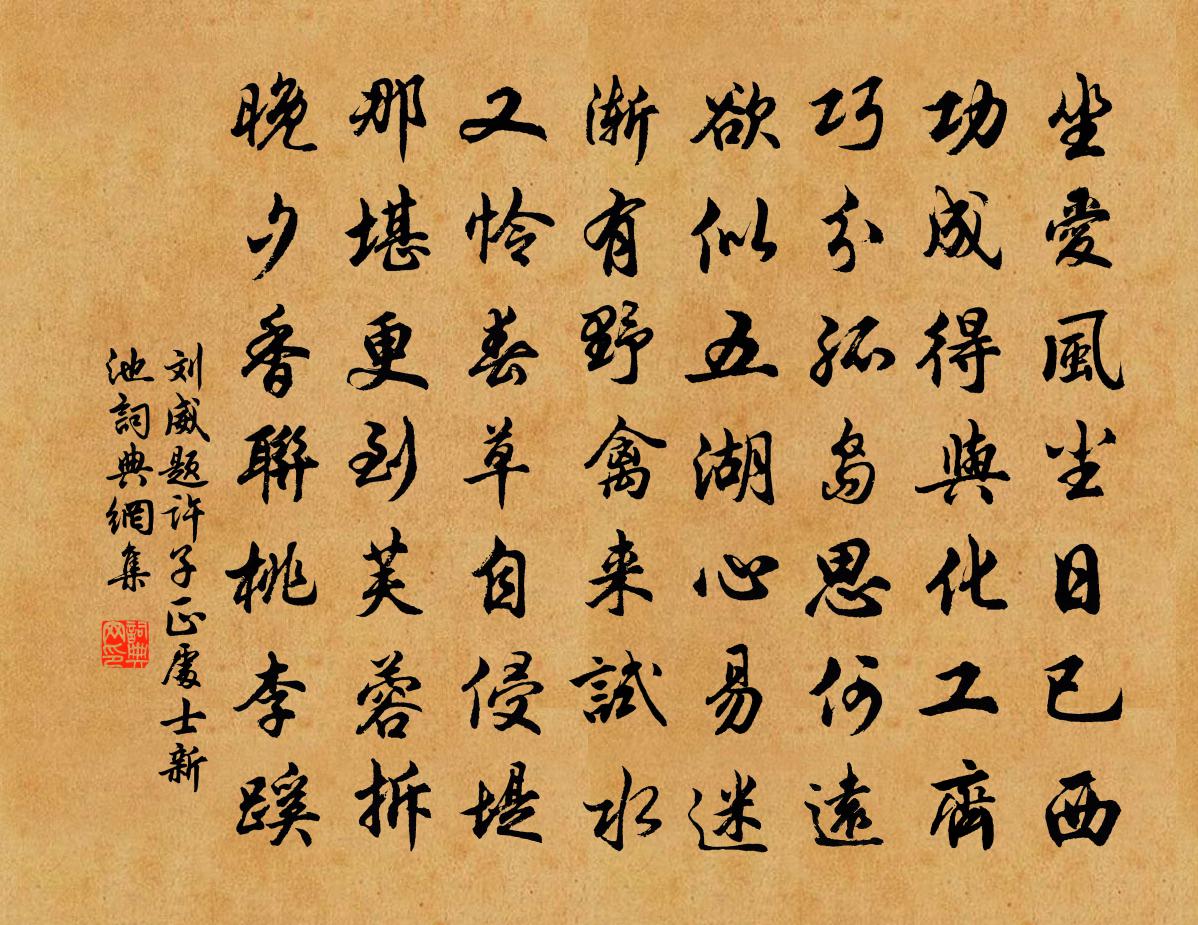 坐愛風塵日已西
功成得與化工齊
巧分孤島思何遠
欲似五湖心易迷
漸有野禽来試水
又怜春草自侵堤
那堪更到芙蓉拆
晚夕香聯桃李蹊
刘威题许子正處士新
池詞典網集
詞典
网印